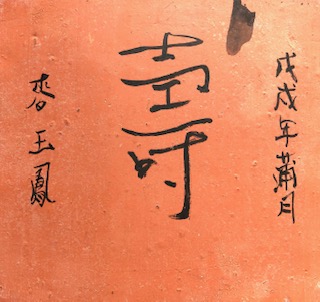 戊戌年蒲月
壽
玉鳳